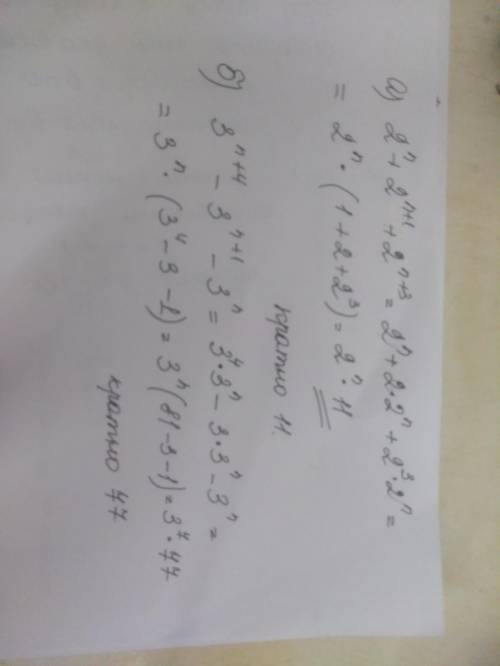 а) 2ⁿ + 2ⁿ⁺¹ + 2ⁿ⁺³ = 2ⁿ + 2·2ⁿ + 2³·2ⁿ =
= 2ⁿ · (1 + 2 + 2³) = 2ⁿ · 11
кратно 11.
б) 3ⁿ⁺⁴ − 3ⁿ⁺¹ − 3ⁿ = 3⁴·3ⁿ − 3·3ⁿ − 3ⁿ =
= 3ⁿ · (3⁴ − 3 − 1) = 3ⁿ (81 − 3 − 1) = 3ⁿ · 77
кратно 77